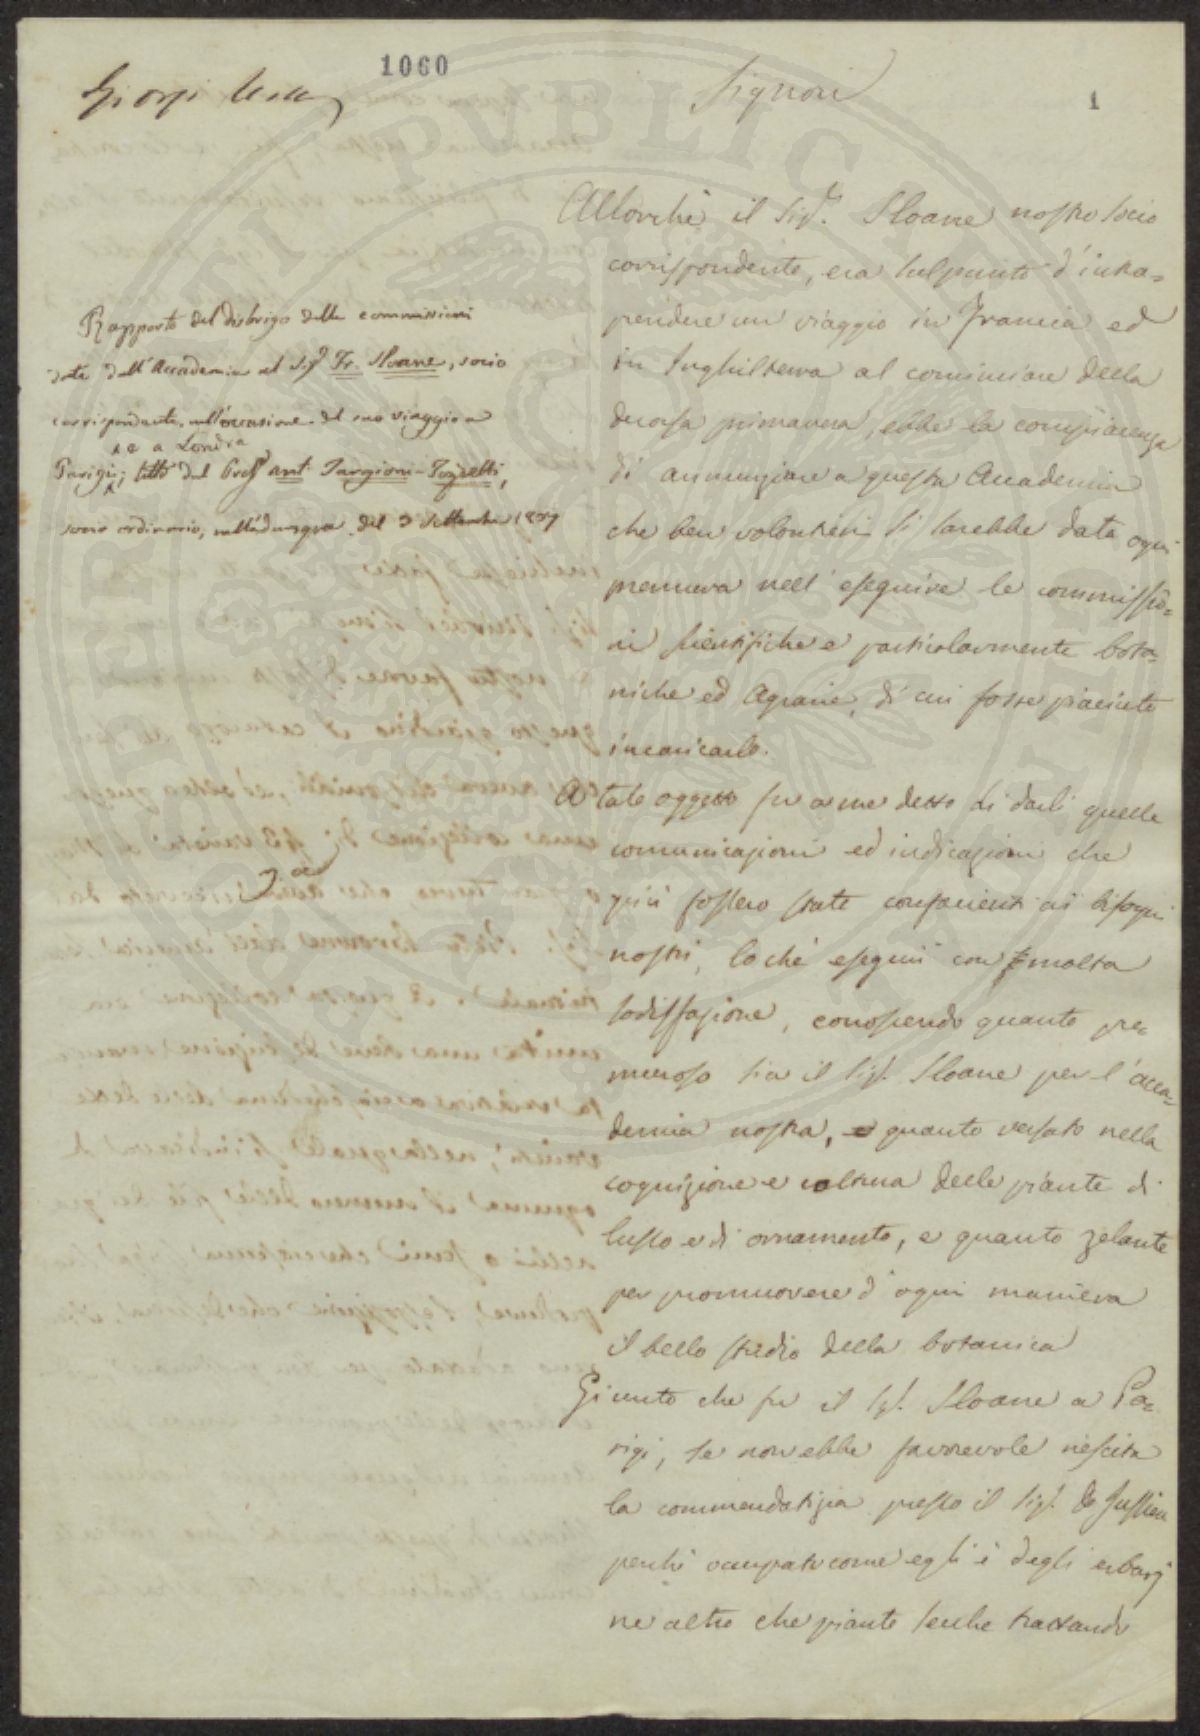 1060
1
Giorgi
Signori
Rapporto del disbrigo delle commissioni
date dall'Accademia al Sigr Fr. Sloane, socio
corrispondente, nell'occasione del suo viaggio a
e a Londra
Parigi; letto dal Profr Ant. Targioni-Tozzetti,
socio ordinario, nell'adunanza del 3 Settembre 1837
Allorchè il Sigr. Sloane nostro socio
corrispondente, era sul punto d'intra-
prendere un viaggio in Francia ed
in Inghilterra al cominciare della
decorsa primavera, ebbe la compiacenza
di annunziare a questa Accademia
che ben volentieri si sarebbe data ogni
premura nell'eseguire le commissio-
ni scientifiche e particolarmente bota-
niche ed Agrarie, di cui fosse piaciuto
incaricarlo.
A tale oggetto fu a me detto di darli quelle
comunicazioni ed indicazioni che
più fossero state confacienti ai bisogni
nostri, lo chè eseguii con molta
sodisfazione, conoscendo quanto pre-
muroso sia il Sigr. Sloane per l'acca-
demia nostra, e quanto versato nella
cognizione e coltura delle piante di
lusso e di ornamento, e quanto zelante
per promuovere d'ogni maniera
il bello studio della botanica
Giunto che fu il Sigr. Sloane a Pa-
rigi, se non ebbe favorevole riescita
la commendatizia presso il Sigr. de Jussieu
perchè occupato come egli è degli erbarj
nè altro che piante secche trattando